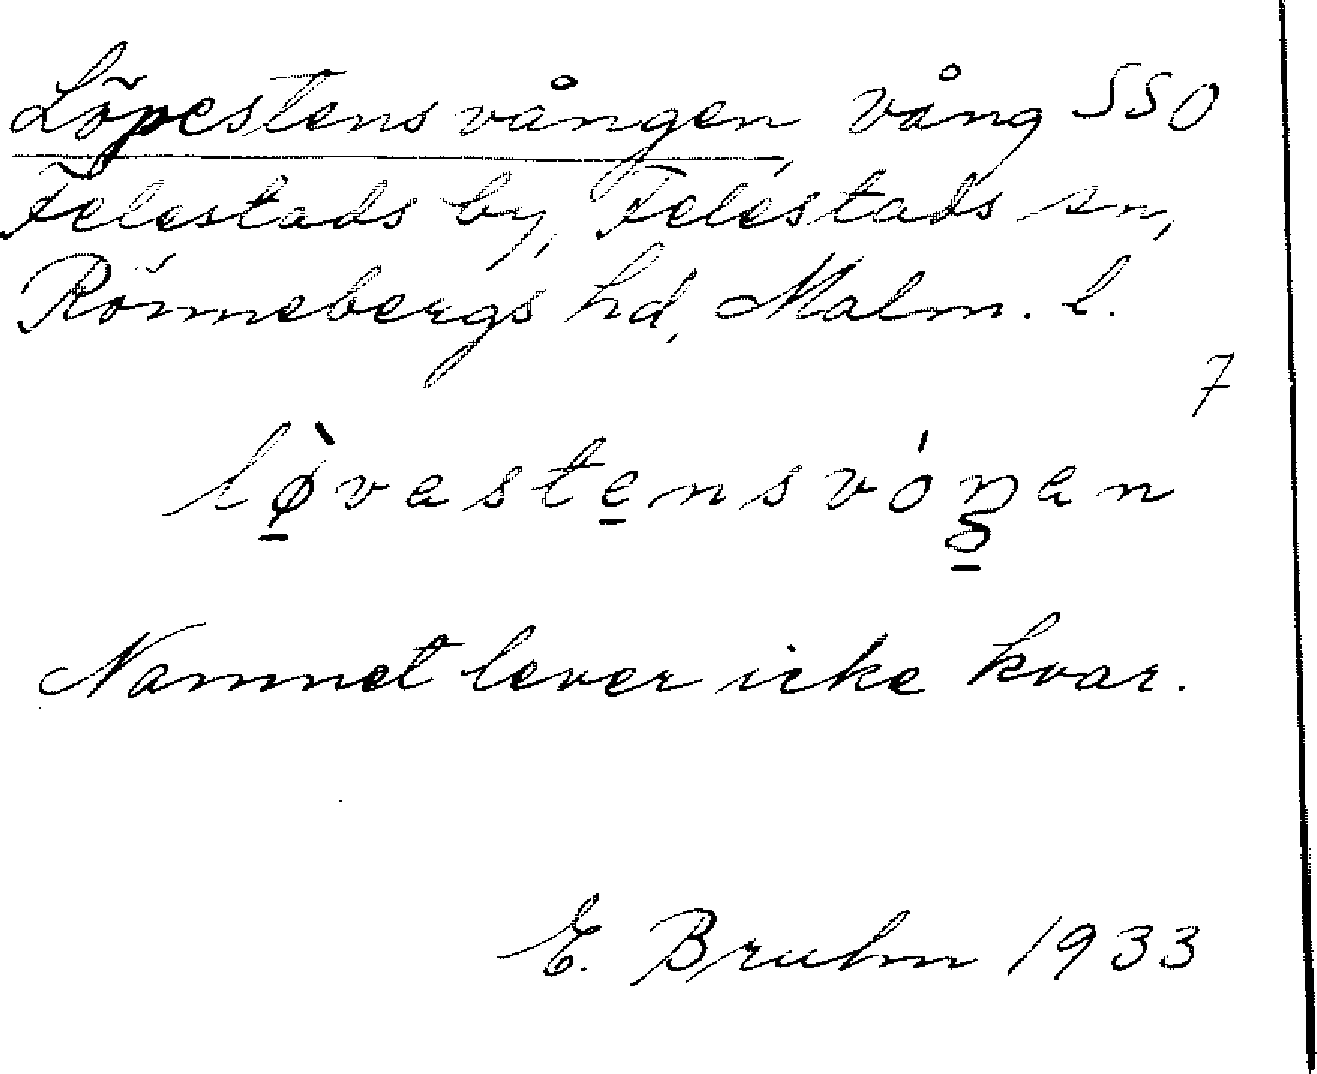 Löpestensvången, vång SSO
Felestads by, Felestads sn,
Rönnebergs hd, Malm. l.
7
lø̀vestensvóŋen
Namnet lever icke kvar.
E. Bruhn 1933